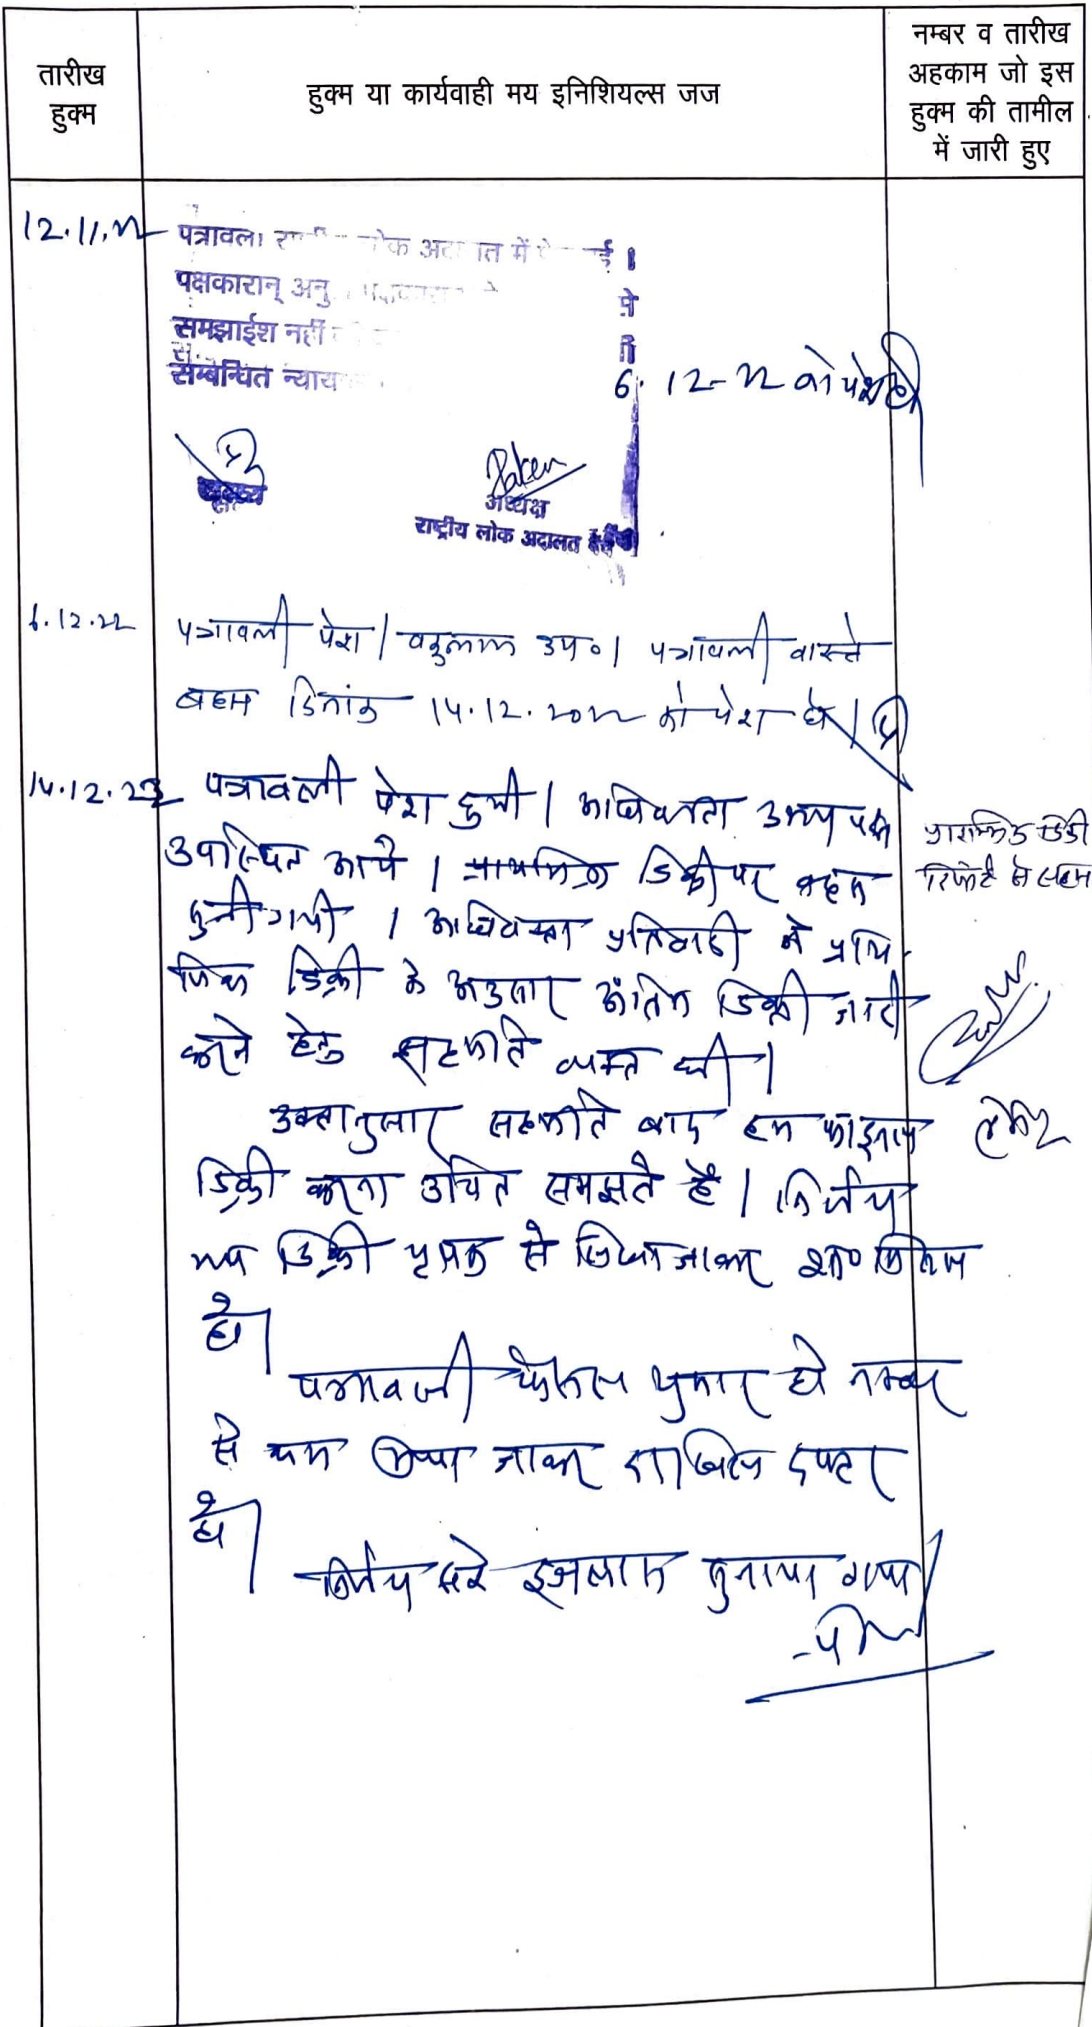 तारीख
हुक्म
हुक्म या कार्यवाही मय इनिशियल्स जज
नम्बर व तारीख
अहकाम जो इस
हुक्म की तामील
में जारी हुए
12.11.22
लोक अदालत में
पक्षकारान् अनु
समझाईश नहीं
सम्बन्धित न्याय
6. 12-22 को पेश हो
अध्यक्ष
राष्ट्रीय लोक अदालत
6.12.22 पत्रावली पेश। वकुलाय उप०। पत्रावली वास्ते
बहस दिनांक 14.12.2022 को पेश हो।
14.12.22 पत्रावली पेश हुयी। अधिवक्ता उभय पक्ष
उपस्थित आये। प्राथमिक डिक्री पर बहस
सुनी गयी। अधिवक्ता प्रतिवादी ने प्राथ-
मिक डिक्री के अनुसार अंतिम डिक्री जारी
करने हेतु सहमति व्यक्त की।
उक्तानुसार सहमति बाद हम फाइनल
डिक्री करना उचित समझते हैं। निर्णय
मय डिक्री पृथक से लिखा जाकर शा० मिसल
हो।
पत्रावली फैसल शुमार हो नम्बर
से कम किया जाकर दाखिल दफ्तर
हो।
निर्णय सरे इजलास सुनाया गया।
डिक्री
रिपोर्ट से सहमत